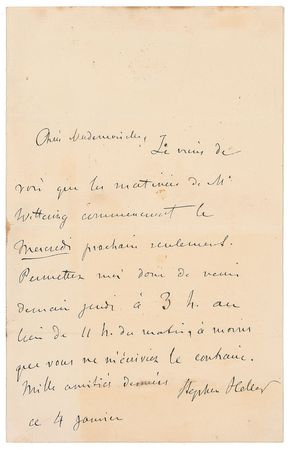 Chère Mademoiselle,
Je viens de
voir que les matinées de Mr
Witting commencent le
Mercredi prochain seulement.
Permettez moi donc de venir
demain jeudi à 3 h. au
lieu de 11 h. du matin, à moins
que vous ne m'écriviez le contraire.
Mille amitiés
Stephen Heller
ce 4 janvier